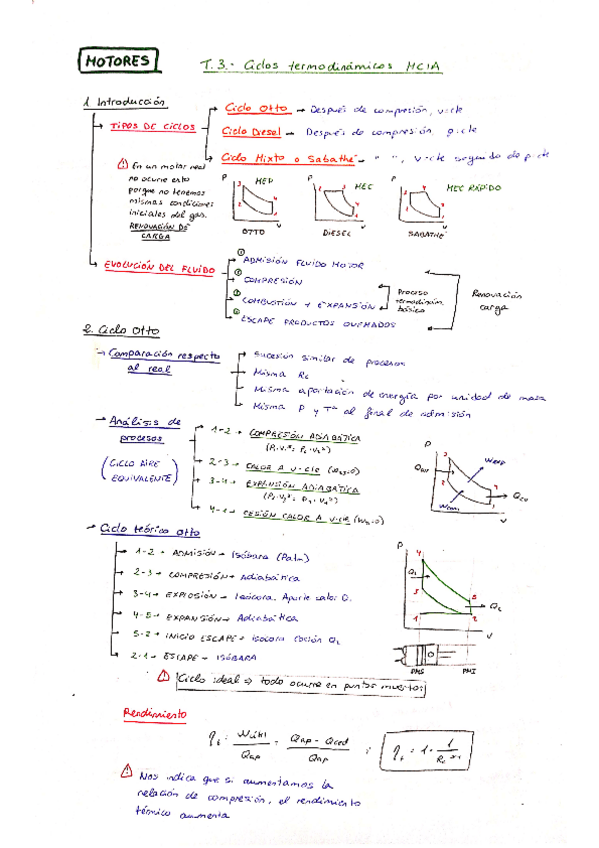 MOTORES
T.3.- Ciclos termodinámicos MCIA
1. Introducción
TIPOS DE CICLOS
Ciclo Otto → Después de compresión, v:cte
Ciclo Diesel → Después de compresión, p:cte
Ciclo Mixto o Sabathé → " ", v:cte seguido de p:cte
En un motor real
no ocurre esto
porque no tenemos
mismas condiciones
iniciales del gas.
RENOVACIÓN DE
CARGA
P
MEP
3
2
4
1
V
OTTO
P
MEC
2
3
4
1
V
DIESEL
P
MEC RÁPIDO
V
SABATHÉ
EVOLUCIÓN DEL FLUIDO
① ADMISIÓN FLUIDO MOTOR
② COMPRESIÓN
③ COMBUSTIÓN + EXPANSIÓN
④ ESCAPE PRODUCTOS QUEMADOS
Proceso
termodinám.
básico
Renovación
carga
2. Ciclo Otto
→ Comparación respecto
al real
Sucesión similar de procesos
Misma Rc
Misma aportación de energía por unidad de masa
Misma P y Tª al final de admisión
→ Análisis de
procesos
(CICLO AIRE
EQUIVALENTE)
1-2 → COMPRESIÓN ADIABÁTICA
2-3 → CALOR A V:CTE
3-4 → EXPANSIÓN ADIABÁTICA
4-1 → CESIÓN CALOR A V:CTE
P
3
2
4
1
V
→ Ciclo teórico Otto
1-2 → ADMISIÓN → Isóbara (Patm)
2-3 → COMPRESIÓN → Adiabática
3-4 → EXPLOSIÓN → Isócora. Aporte calor Q1
4-5 → EXPANSIÓN → Adiabática
5-2 → INICIO ESCAPE → Isócora cesión Q2
2-1 → ESCAPE → ISÓBARA
P
4
Q1
3
5
Q2
1
2
V
PMS
PMI
Ciclo ideal ⇒ todo ocurre en puntos muertos
Rendimiento
ηt = Wútil / Qap = Qap - Qced / Qap ; ηt = 1 - 1 / Rc^γ-1
Nos indica que si aumentamos la
relación de compresión, el rendimiento
térmico aumenta